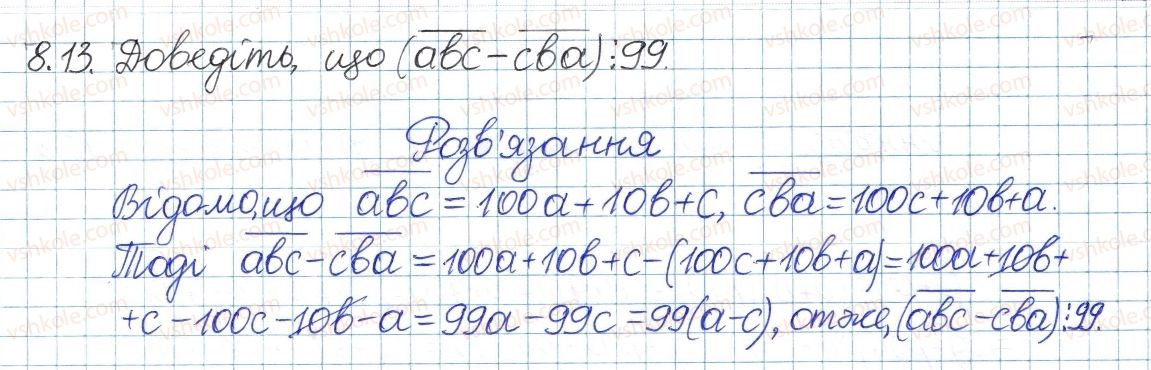 8.13. Доведіть, що (a̅b̅c̅ − c̅b̅a̅)⋮99.
Розв'язання
Відомо, що a̅b̅c̅ = 100a + 10b + c, c̅b̅a̅ = 100c + 10b + a.
Тоді a̅b̅c̅ − c̅b̅a̅ = 100a + 10b + c − (100c + 10b + a) = 100a + 10b +
+ c − 100c − 10b − a = 99a − 99c = 99(a − c), отже, (a̅b̅c̅ − c̅b̅a̅)⋮99.